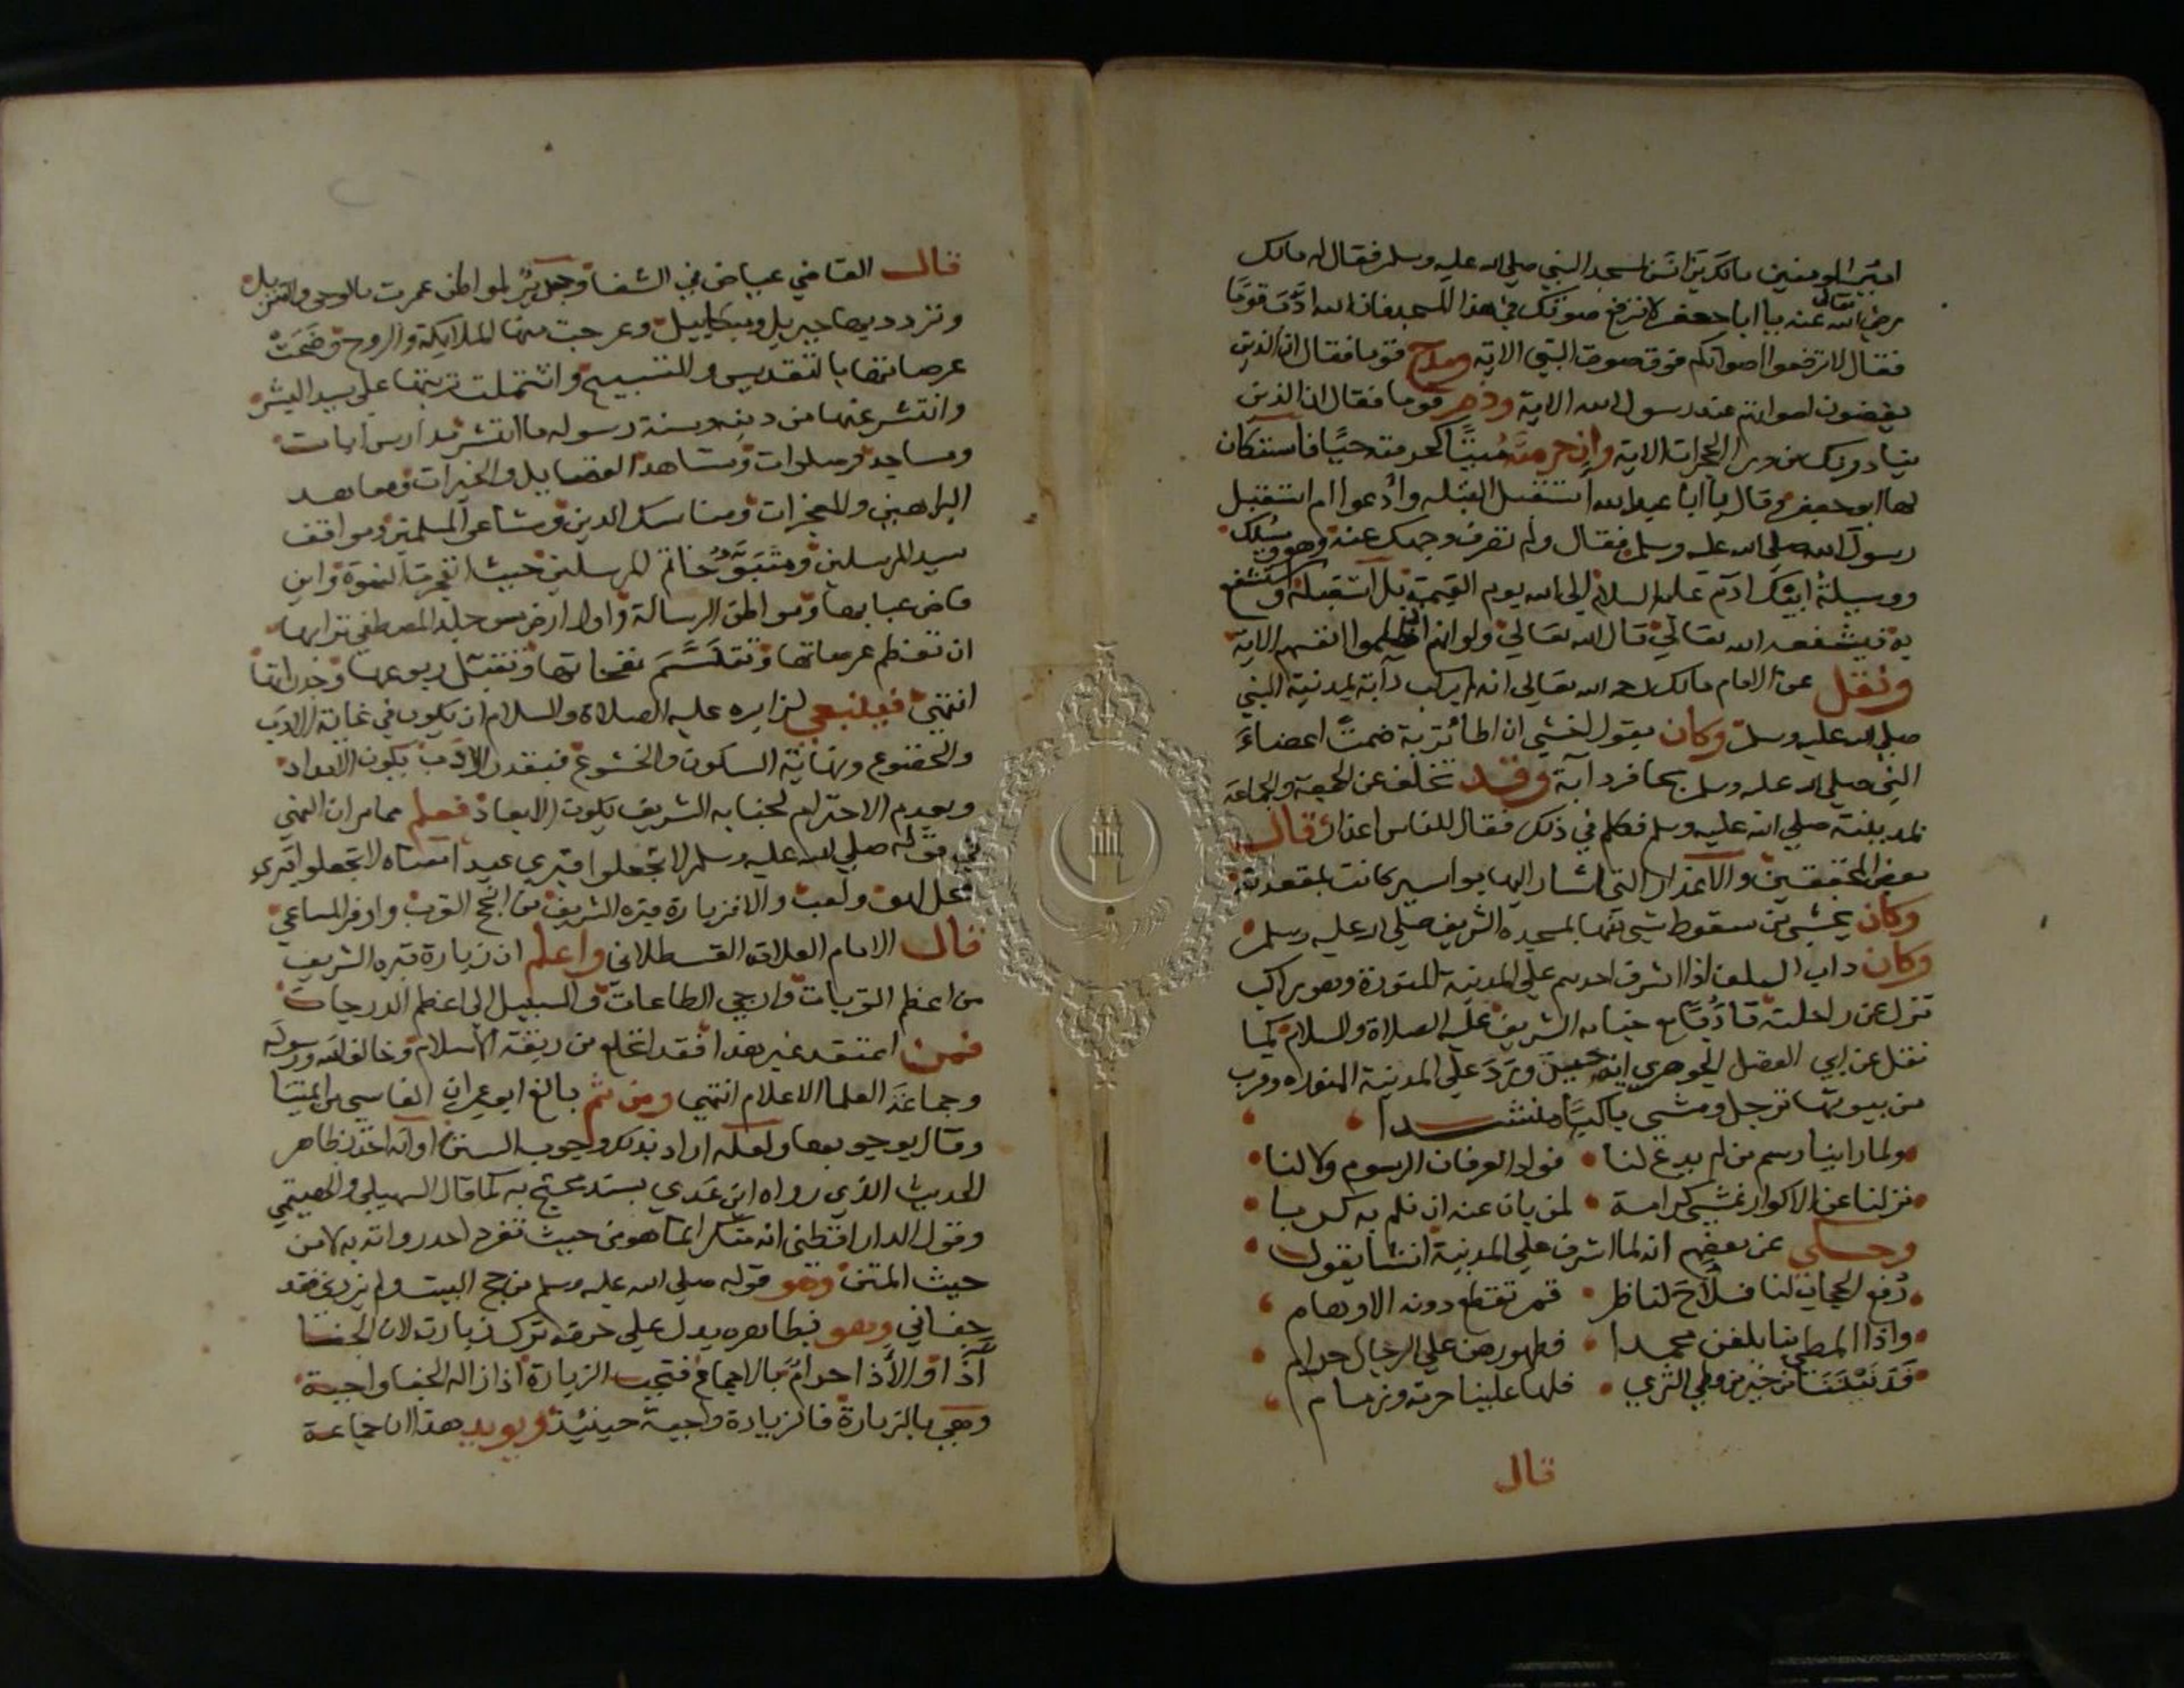 امير المومنين مالك بن انس لمسجد النبي صلي الله عليه وسلم فقال له مالك
رضي الله تعالى عنه يا ابا جعفر لا ترفع صوتك في هذا المسجد فان الله ادّب قومًا
فقال لا ترفعوا اصواتكم فوق صوت النبي الاية ومدح قوما فقال ان الذين
يغضون اصواتهم عند رسول الله الاية وذم قوما فقال ان الذين
ينادونك من ورا الحجرات الاية وان حرمته ميتًا كحرمته حيًا فاستكان
لها ابو جعفر وقال يا ابا عبد الله استقبل القبله وادعوا ام استقبل
رسول الله صلي الله عليه وسلم فقال ولم تصرف وجهك عنه وهو وسيلتك
ووسيلة ابيك ادم عليه السلام الي الله يوم القيمة بل استقبله واستشفع
به فيشفعه الله تعالي قال الله تعالي ولو انهم اذ ظلموا انفسهم الاية
ونقل عن الامام مالك رحمه الله تعالي انه لم يركب دابة بمدينة النبي
صلي الله عليه وسلم وكان يقول اخشي ان اطا تربة ضمت اعضاء
النبي صلي الله عليه وسلم بحافر دابة وقد تخلف عن الجمعة والجماعة
بمدينته صلي الله عليه وسلم فكلم في ذلك فقال للناس اعذار قال
بعض المحققين والاعذار التي اشار اليها بواسير كانت بمقعدته
وكان يخشي من سقوط شي منها بمسجده الشريف صلي الله عليه وسلم
وكان داب السلف اذا اشرف احدهم علي المدينة المنورة وهو راكب
نزل عن راحلته تادُّبًا مع جنابه الشريف عليه الصلاة والسلام كما
نقل عن ابي الفضل الجوهري انه حين ورد علي المدينة المنوره وقرب
من بيوتها ترجل ومشي باكيًا منشدا
ولما راينا رسم من لم يدع لنا • فواد العرفان الرسوم ولا لبا
نزلنا عن الاكوار نمشي كرامة • لمن بان عنه ان نلم به كربا
وحكي عن بعضهم انه لما اشرف علي المدينة انشا يقول
رُفع الحجاب لنا فلاح لناظر • قمر تقطع دونه الاوهام
واذا المطي بنا بلغن محمدا • فظهورهن علي الرجال حرام
قد نبلتنا من خير من وطي الثري • فلها علينا حرمة وزمام
قال
قال القاضي عياض في الشفا وجدير لمواطن عمرت بالوحي والتنزيل
وتردد بها جبريل وميكاييل وعرجت منها الملايكة والروح وضجت
عرصاتها بالتقديس والتسبيح واشتملت تربتها علي سيد البشر
وانتشر عنها من دين وسنة رسوله ما انتشر مدارس ايات
ومساجد وصلوات ومشاهد الفضايل والخيرات ومعاهد
البراهين والمعجزات ومناسك الدين ومشاعر المسلمين ومواقف
سيد المرسلين ومتبوَّء خاتم المرسلين حيث انفجرت النبوة واين
فاض عبابها ومواطن الرسالة واول ارض مس جلد المصطفي ترابها
ان تعظم عرصاتها وتتنسَّم نفحاتها وتقبل ربوعها وجدراتها
انتهي فينبغي لزايره عليه الصلاة والسلام ان يكون في غاية الادب
والخضوع ونهاية السكون والخشوع فبقدر الادب يكون الامداد
وبعدم الاحترام لجنابه الشريف يكون الابعاد فعلم مما مر ان النهي
في قوله صلي الله عليه وسلم لا تجعلوا قبري عيدا معناه لا تجعلوا قبري
محل لهو ولعب والا فزيارة قبره الشريف من انجح القرب واوفر المساعي
قال الامام العلامة القسطلاني واعلم ان زيارة قبره الشريف
من اعظم القربات وارجي الطاعات والسبيل الي اعظم الدرجات
فمن اعتقد غير هذا فقد انخلع من ربقة الاسلام وخالف الله ورسوله
وجماعة العلما الاعلام انتهي ومن ثم بالغ ابو عمران الفاسي
وقال بوجوبها ولعله اراد بذلك وجوب السنن او انه اخذ بظاهر
الحديث الذي رواه ابن عَدي بسند يحتج به كما قال السهيلي والهيتمي
وقول الدارقطني انه منكر انما هو من حيث تفرد احد رواته به لا من
حيث المتن وهو قوله صلي الله عليه وسلم من حج البيت ولم يزرني فقد
جفاني وهو بظاهره يدل علي حرمة ترك زيارته لان الجفا
اذًا والأذا حرام بالاجماع فتجب الزيارة اذ ازاله الجفا واجبة
وهي بالزيارة فالزيارة واجبة حينيذ ويويد هذا ان جماعة